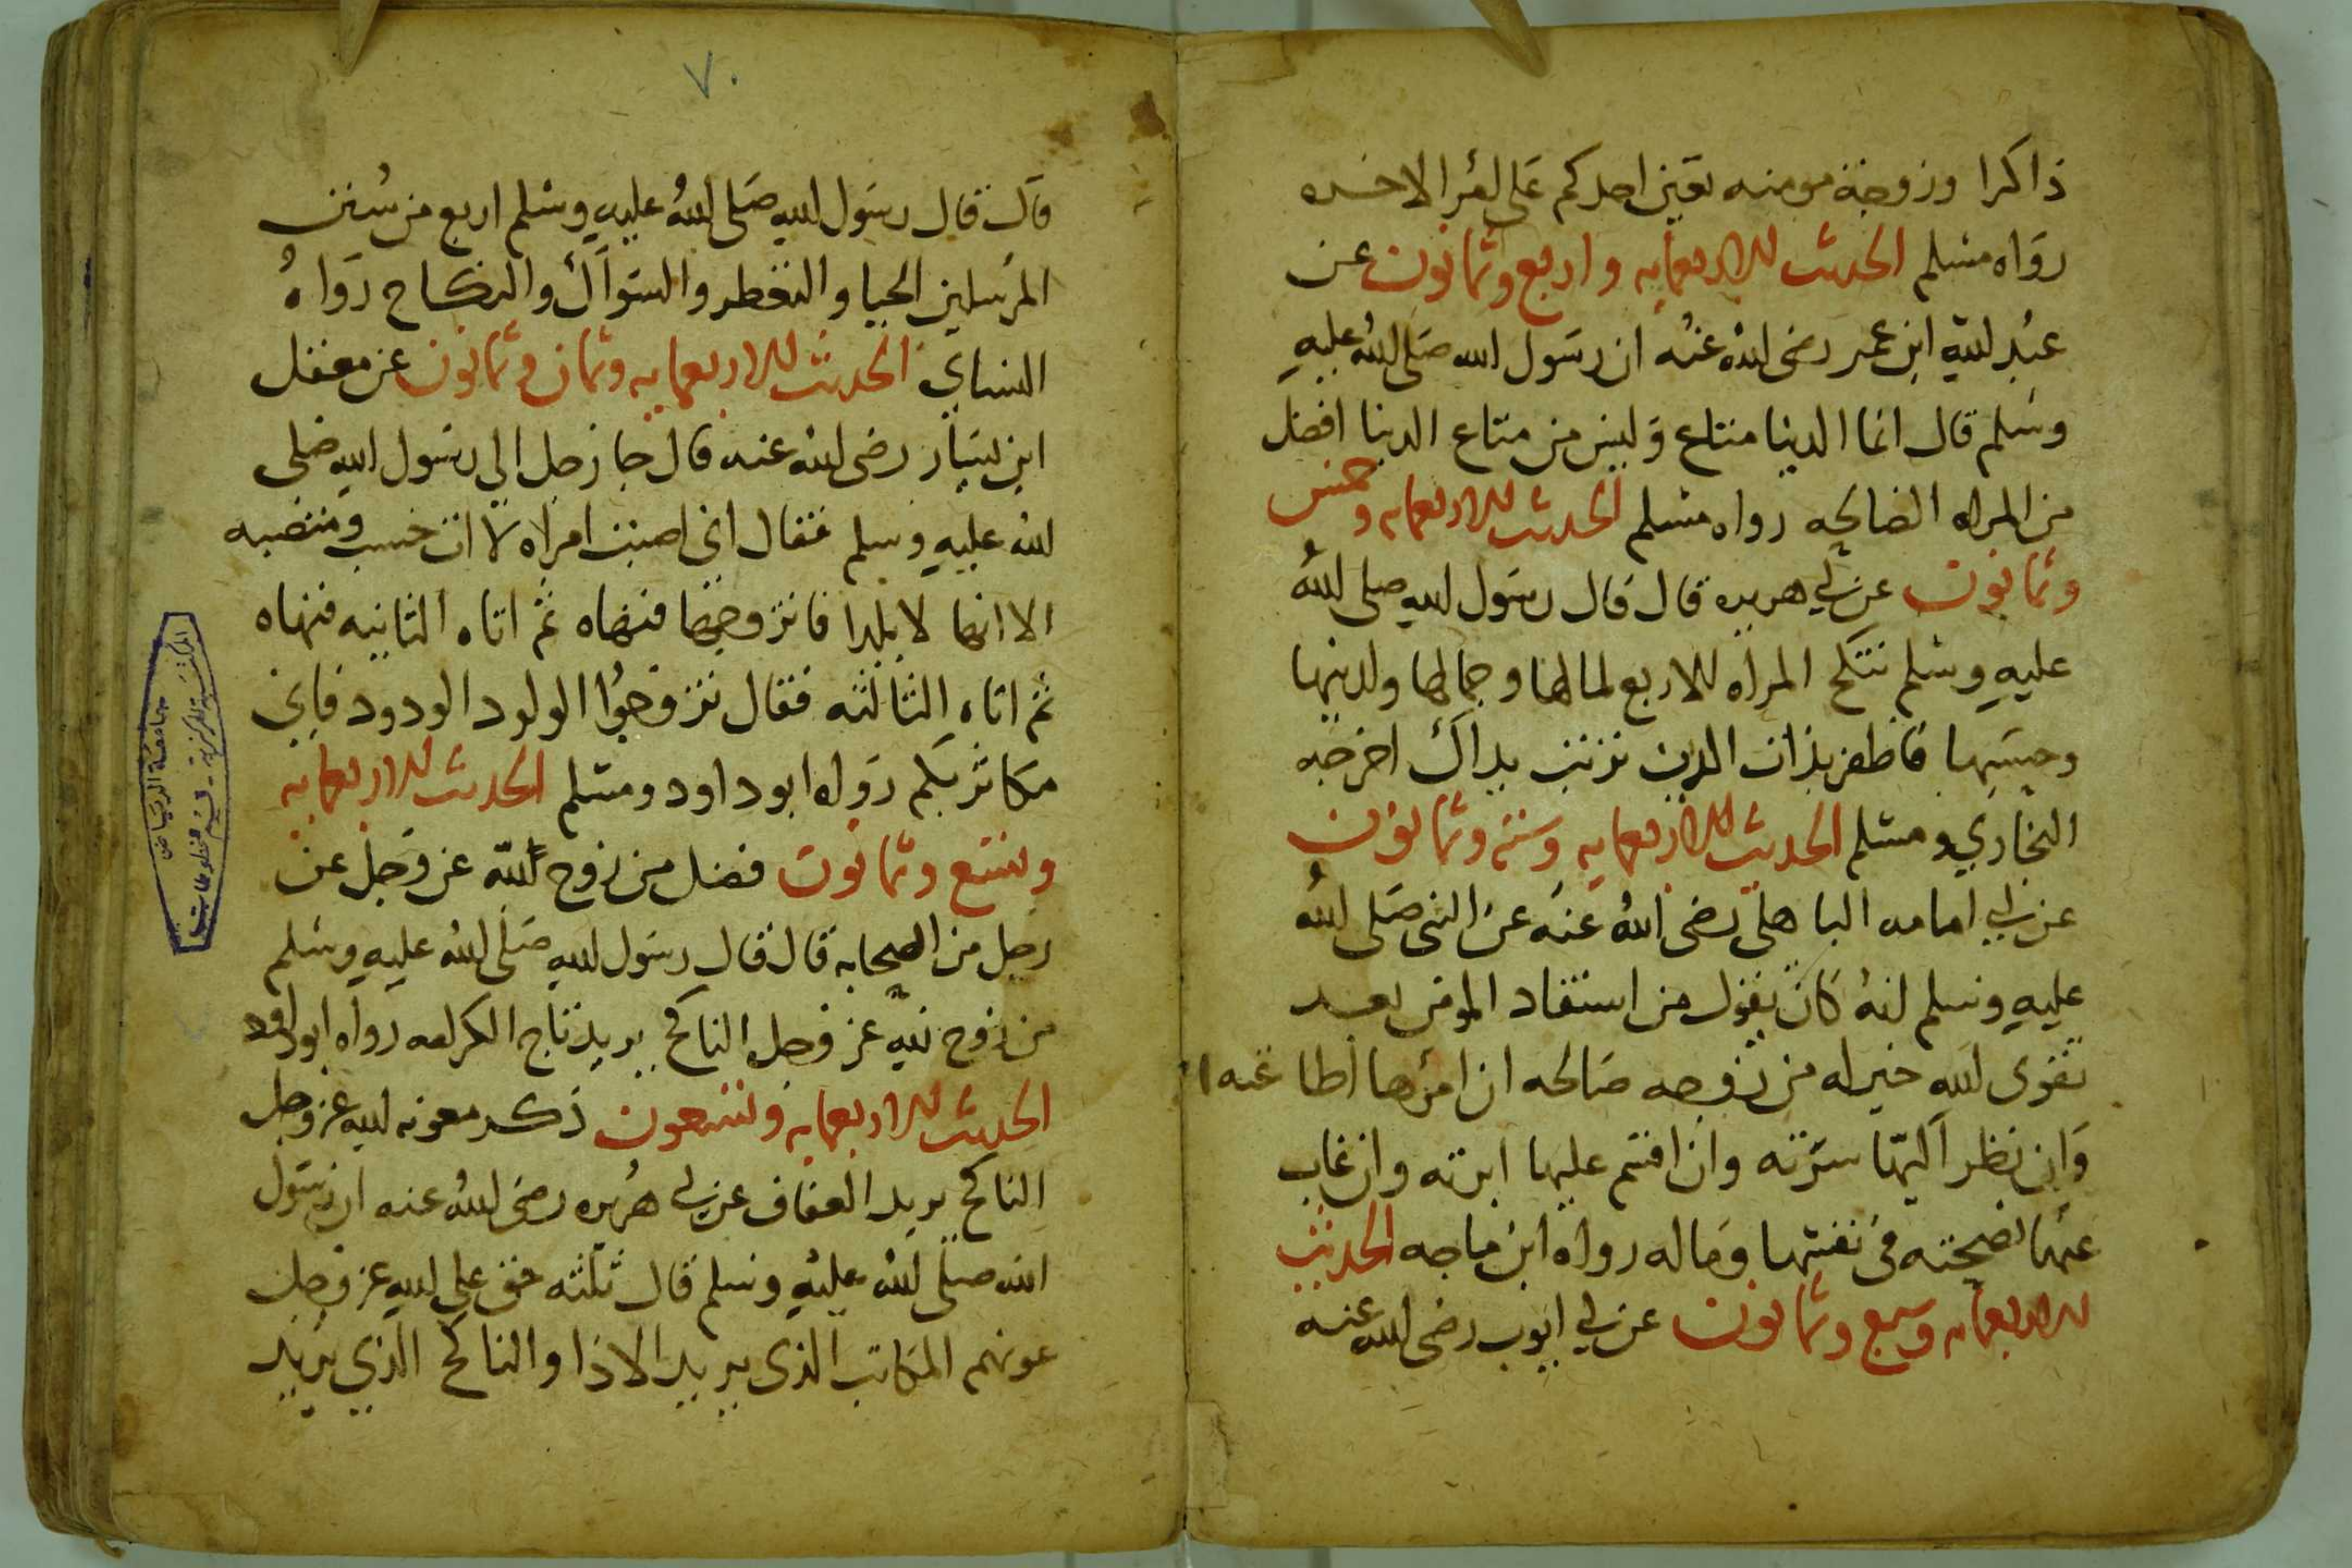 ذاكرا وزوجة مومنه تعين احدكم على امر الاخره
رواه مسلم الحديث للاربعمايه واربع وثمانون عن
عبد الله ابن عمر رضى الله عنه ان رسول الله صلى الله عليه
وسلم قال انما الدنيا متاع وليس من متاع الدنيا افضل
من المراه الصالحه رواه مسلم الحديث للاربعمايه وخمس
وثمانون عن ابي هريره قال قال رسول الله صلى الله
عليه وسلم تنكح المراه للاربع لمالها وجمالها ولدينها
وحسبها فاظفر بذات الدين تربت يداك اخرجه
البخاري ومسلم الحديث للاربعمايه وسته وثمانون
عن ابي امامه الباهلى رضى الله عنه عن النبى صلى الله
عليه وسلم انه كان يقول من استفاد المومن بعد
تقوى الله خير له من زوجه صالحه ان امرها اطاعته
وان نظر اليها سرته وان اقسم عليها ابرته وان غاب
عنها نصحته فى نفسها وماله رواه ابن ماجه الحديث
للاربعمايه وسبع وثمانون عن ابي ايوب رضى الله عنه
٧٠
قال قال رسول الله صلى الله عليه وسلم اربع من سنن
المرسلين الحيا والتعطر والسواك والنكاح رواه
النساي الحديث للاربعمايه وثمان وثمانون عن معقل
ابن يسار رضى الله عنه قال جا رجل الي رسول الله صلى
الله عليه وسلم فقال انى اصبت امراه لا ات حسب ومنصبه
الا انها لا يلدا فاتزوجها فنهاه ثم اتاه الثانيه فنهاه
ثم اتاه الثالثه فقال تزوجوا الولود الودود فاني
مكاثر بكم رواه ابو داود ومسلم الحديث للاربعمايه
وتسع وثمانون فضل من زوج لله عز وجل عن
رجل من الصحابه قال قال رسول الله صلى الله عليه وسلم
من زوج لله عز وجل الناكح يريد تاج الكرامه رواه ابو داود
الحديث للاربعمايه وتسعون ذكر معونه الله عز وجل
الناكح يريد العفاف عن ابي هريره رضى الله عنه ان رسول
الله صلى الله عليه وسلم قال ثلثه حق علي الله عز وجل
عونهم المكاتب الذى يريد الاذا والناكح الذي يريد
جامعة الرياض
المكتبة المركزية - قسم المخطوطات